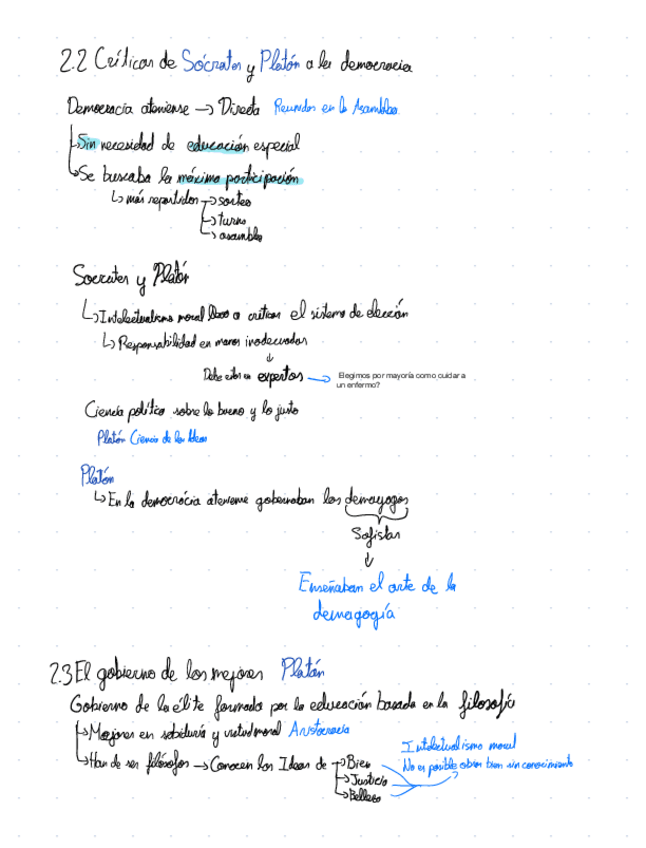 2.2 Críticas de Sócrates y Platón a la democracia
Democracia ateniense → Directa Reunidos en la Asamblea
↳ Sin necesidad de educación especial
↳ Se buscaba la máxima participación
↳ más repartidos → sorteo
↳ turnos
↳ asamblea
Socrates y Platón
↳ Intelectualismo moral lleva a criticar el sistema de elección
↳ Responsabilidad en manos inadecuadas
↓
Debe estar en expertos → Elegimos por mayoría como cuidar a
un enfermo?
Ciencia política sobre lo bueno y lo justo
Platón Ciencia de las Ideas
Platón
↳ En la democrácia ateniense gobernaban los demagogos
Sofistas
↓
Enseñaban el arte de la
demagogía
2.3 El gobierno de los mejores Platón
Gobierno de la élite formada por la educación basada en la filosofía
↳ Mejores en sabiduría y virtud moral Aristocracia
Intelectualismo moral
↳ Han de ser filósofos → Conocen las Ideas de → Bien No es posible obrar bien sin conocimiento
↳ Justicia
↳ Belleza